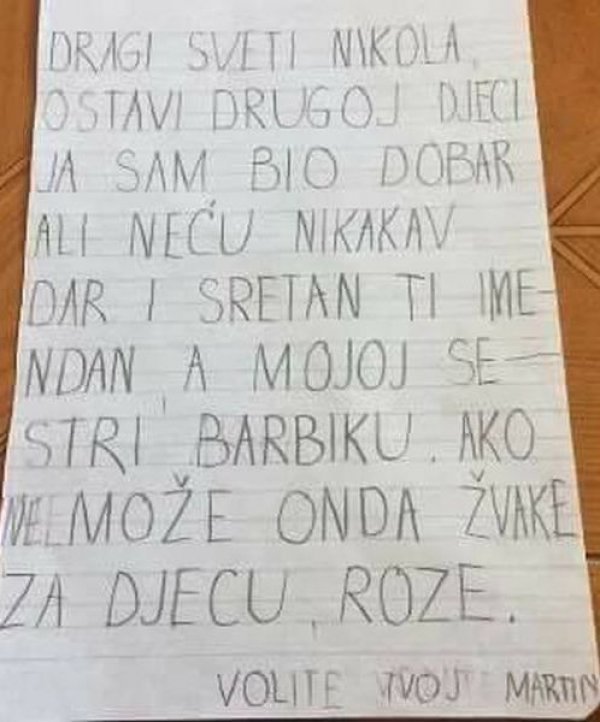 DRAGI SVETI NIKOLA,
OSTAVI DRUGOJ DJECI
JA SAM BIO DOBAR
ALI NEĆU NIKAKAV
DAR I SRETAN TI IME-
NDAN, A MOJOJ SE-
STRI BARBIKU. AKO
NE MOŽE ONDA ŽVAKE
ZA DJECU, ROZE.
VOLI TE TVOJ MARTIN